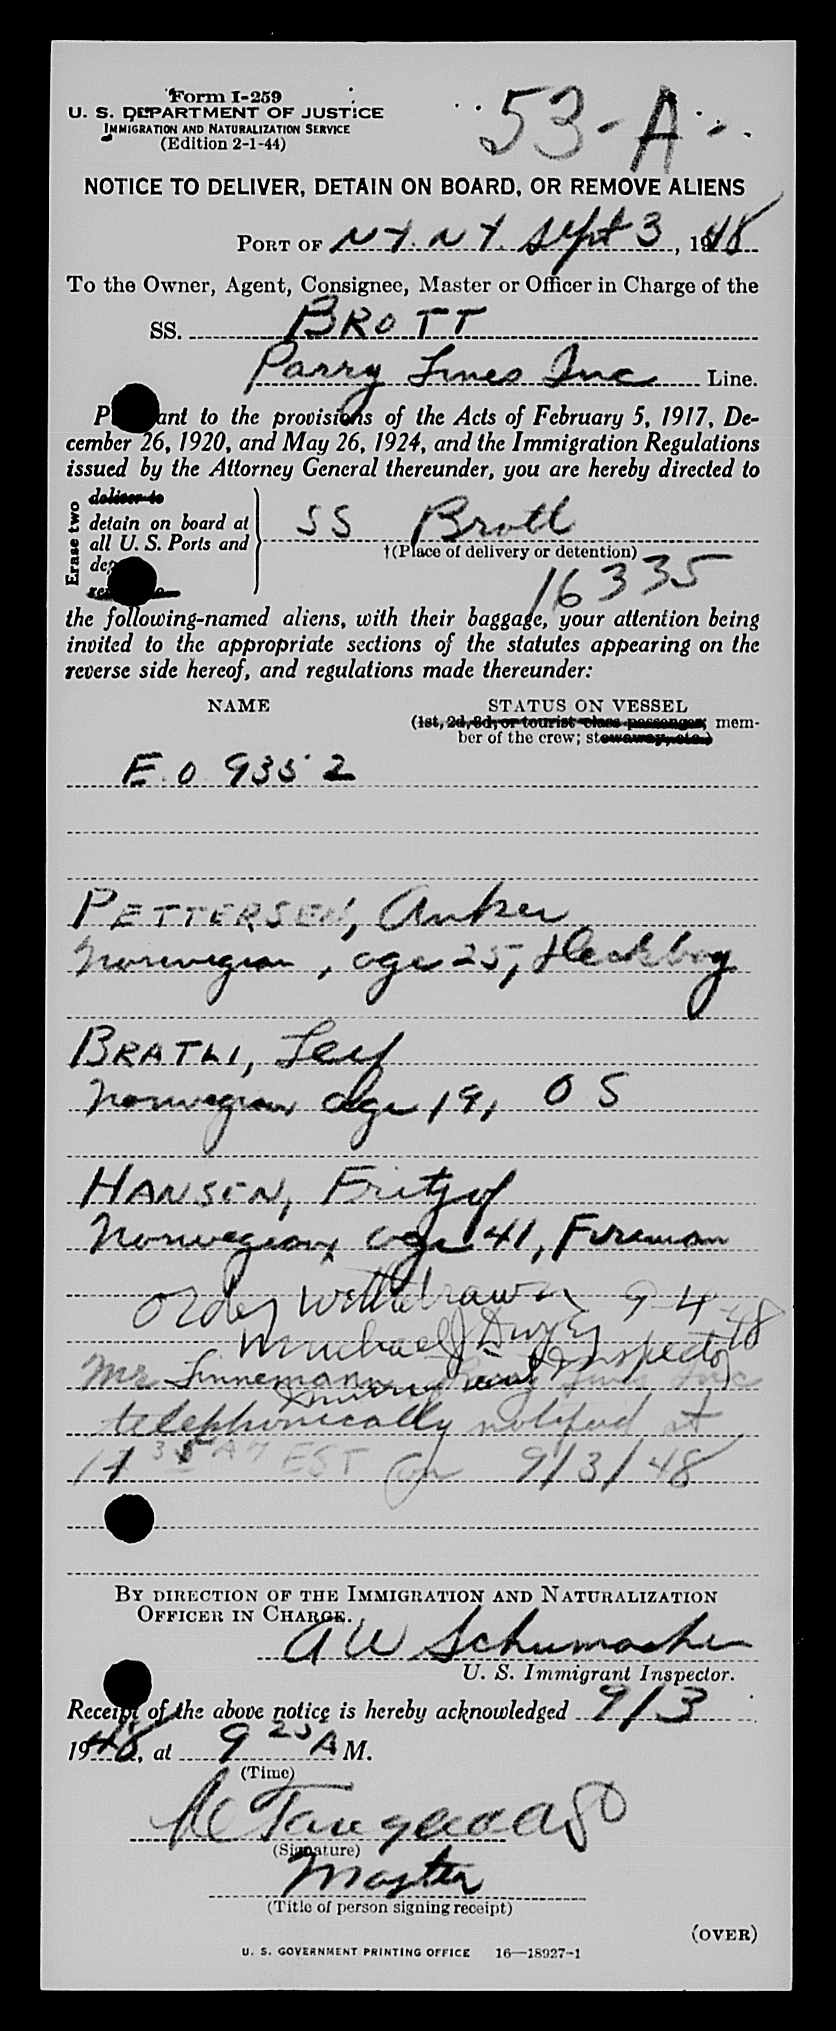 Form I-259
53-A
U. S. DEPARTMENT OF JUSTICE
IMMIGRATION AND NATURALIZATION SERVICE
(Edition 2-1-44)
NOTICE TO DELIVER, DETAIN ON BOARD, OR REMOVE ALIENS
PORT OF N.Y. N.Y. Sept 3, 1948
To the Owner, Agent, Consignee, Master or Officer in Charge of the
SS. BROTT
Parry Lines Inc Line.
P ant to the provisions of the Acts of February 5, 1917, De-
cember 26, 1920, and May 26, 1924, and the Immigration Regulations
issued by the Attorney General thereunder, you are hereby directed to
Erase two
deliver to
detain on board at
all U. S. Ports and
SS Brott
†(Place of delivery or detention)
16335
the following-named aliens, with their baggage, your attention being
invited to the appropriate sections of the statutes appearing on the
reverse side hereof, and regulations made thereunder:
NAME STATUS ON VESSEL
(1st, 2d, 3d, or tourist class passenger; mem-
ber of the crew; stowaway, etc.)
E.O. 9352
PETTERSEN, Anker
Norwegian, age 25, Deckboy
BRATLI, Leif
Norwegian age 19, OS
HANSEN, Fritzof
Norwegian, age 41, Fireman
Order Withdrawn 9-4-48
Michael J Inspector
Mr Linnemann Lines Inc
telephonically notified at
11 35 AM EST on 9/3/48
BY DIRECTION OF THE IMMIGRATION AND NATURALIZATION
OFFICER IN CHARGE.
A W Schumacher
U. S. Immigrant Inspector.
Receipt of the above notice is hereby acknowledged 9/3
1948, at 9 25 A M.
(Time)
(Signature)
Master
(Title of person signing receipt)
(OVER)
U. S. GOVERNMENT PRINTING OFFICE 16—18927-1